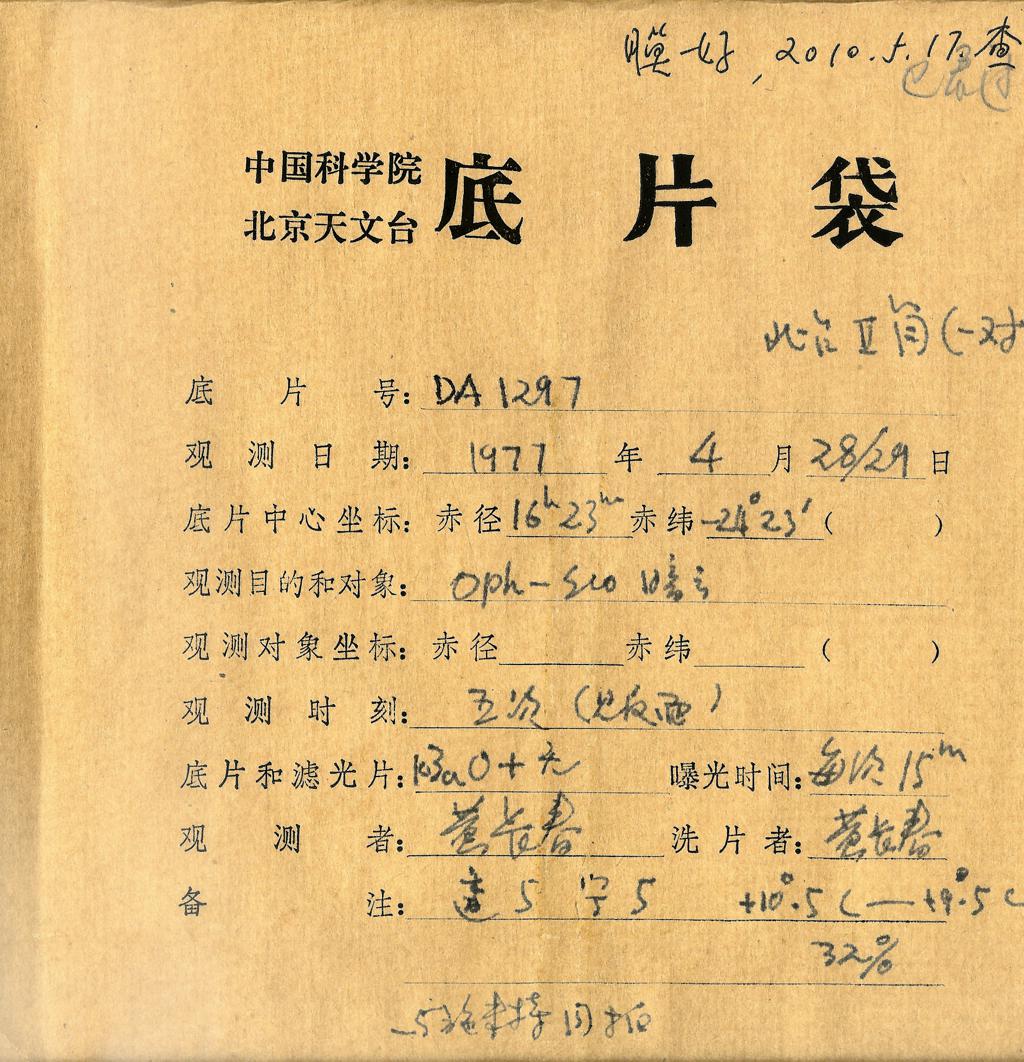 膜好,2010.5.17.查
中国科学院
北京天文台
底片袋
(一对
底片号:DA 1297
观测日期:1977年4月28/29日
底片中心坐标:赤径16h23m赤纬-24°23′( )
观测目的和对象:Oph-Sco 暗云
观测对象坐标:赤径 赤纬 ( )
观测时刻:五次(见反面)
底片和滤光片:103aO+无 曝光时间:每次15m
观测者:长春 洗片者:长春
备注:5 宁5 +10°.5C—+9°.5C
32%